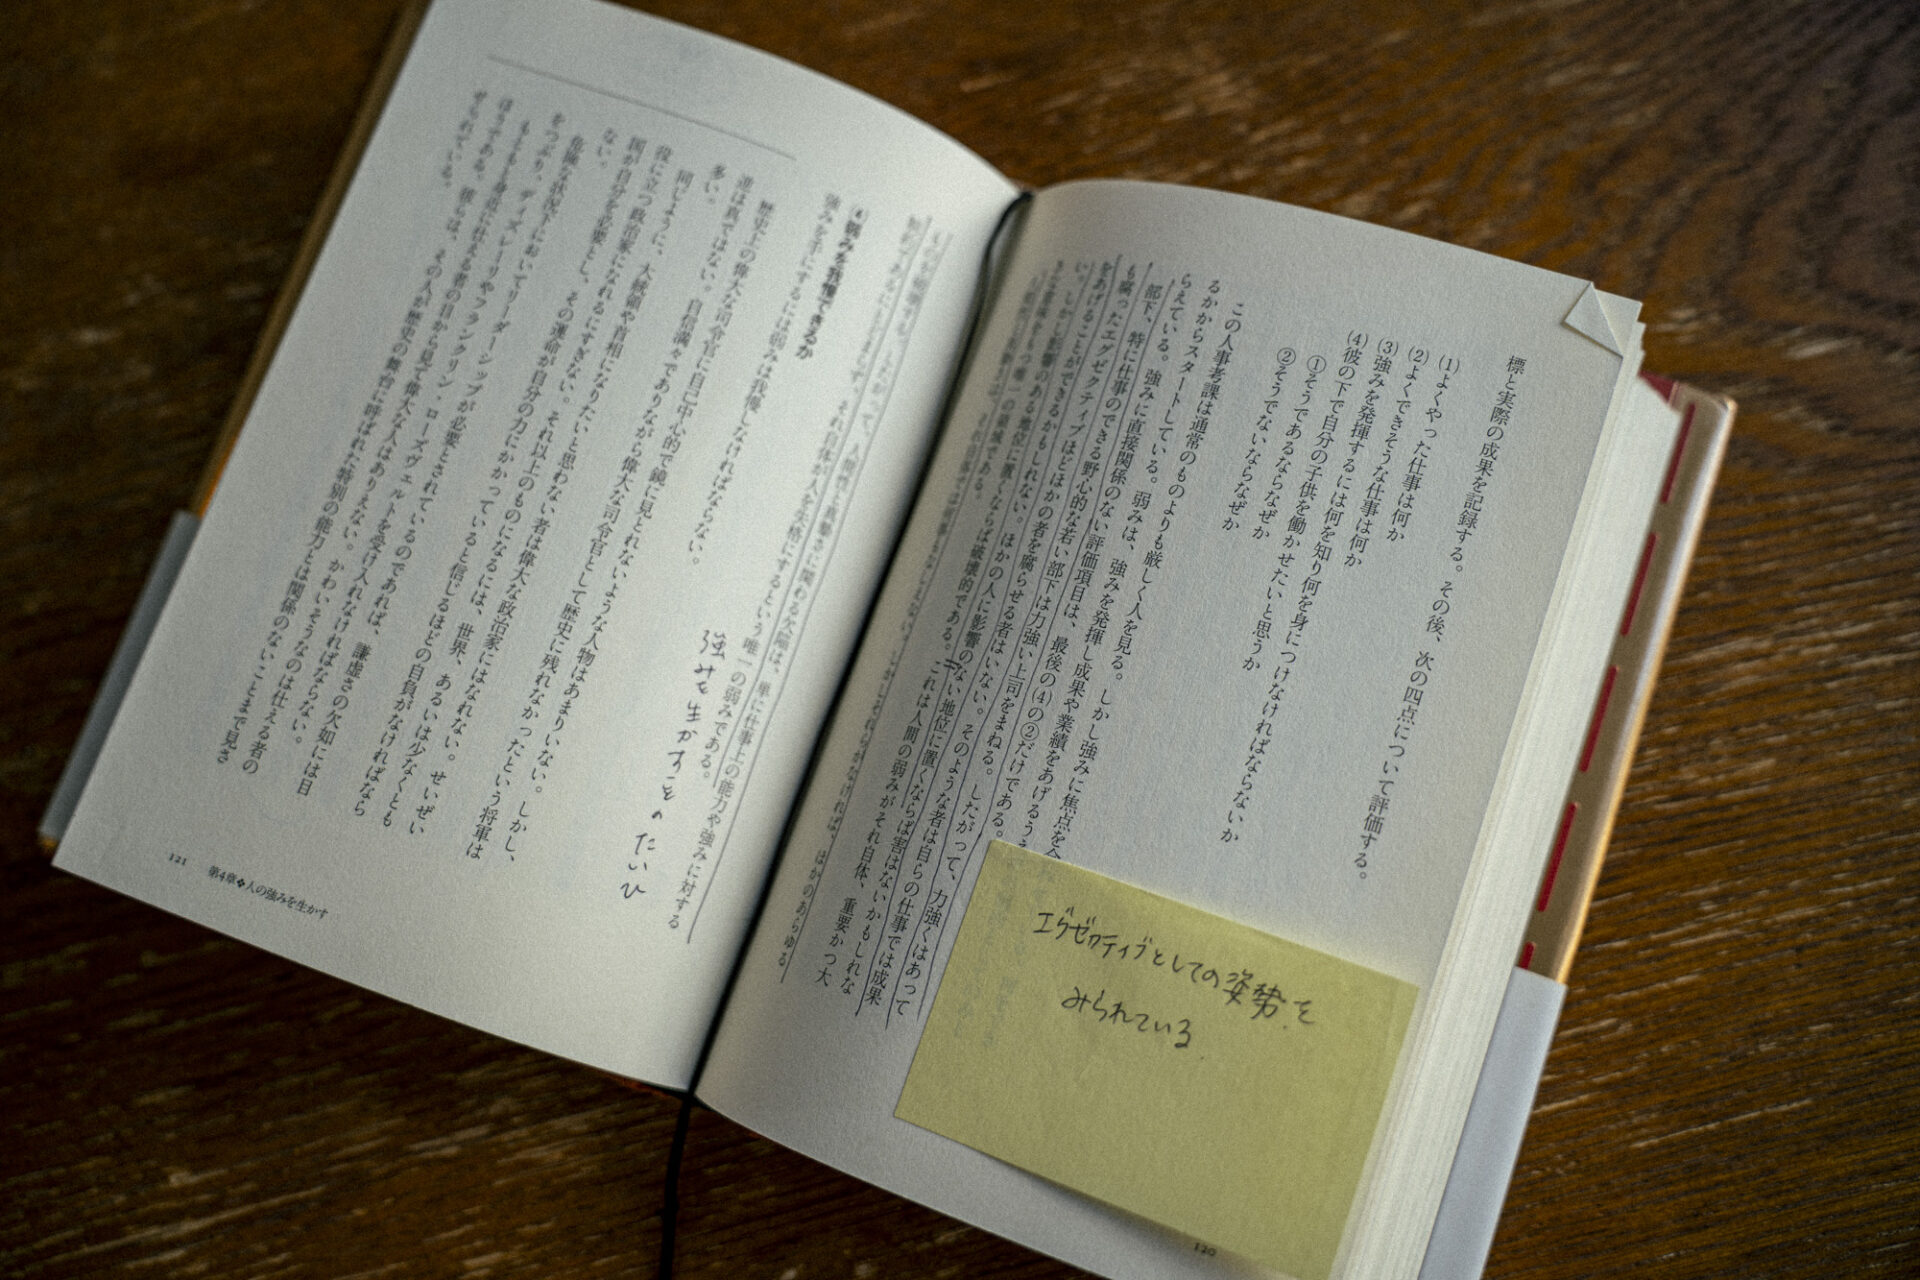 標と実際の成果を記録する。その後、次の四点について評価する。
(1)よくやった仕事は何か
(2)よくできそうな仕事は何か
(3)強みを発揮するには何を知り何を身につけなければならないか
(4)彼の下で自分の子供を働かせたいと思うか
①そうであるならなぜか
②そうでないならなぜか
この人事考課は通常のものよりも厳しく人を見る。しかし強みに焦点を合
るかからスタートしている。弱みは、強みを発揮し成果や業績をあげるうえ
らえている。強みに直接関係のない評価項目は、最後の(4)の②だけである。
部下、特に仕事のできる野心的な若い部下は力強い上司をまねる。したがって、力強くはあって
も腐ったエグゼクティブほどほかの者を腐らせる者はいない。そのような者は自らの仕事では成果
をあげることができるかもしれない。ほかの人に影響のない地位に置くならば害はないかもしれな
い。しかし影響のある地位に置くならば破壊的である。これは人間の弱みがそれ自体、重要かつ大
ほかのあらゆる
エグゼクティブとしての姿勢を
みられている
120
それ自体が人を失格にするという唯一の弱みである。
④弱みを我慢できるか
強みを手にするには弱みは我慢しなければならない。
強みを生かすことのたいひ
歴史上の偉大な司令官に自己中心的で鏡に見とれないような人物はあまりいない。しかし、
逆は真ではない。自信満々でありながら偉大な司令官として歴史に残れなかったという将軍は
多い。
同じように、大統領や首相になりたいと思わない者は偉大な政治家にはなれない。せいぜい
役に立つ政治家になれるにすぎない。それ以上のものになるには、世界、あるいは少なくとも
国が自分を必要とし、その運命が自分の力にかかっていると信じるほどの自負がなければなら
ない。
危険な状況下においてリーダーシップが必要とされているのであれば、謙虚さの欠如には目
をつぶり、ディズレーリやフランクリン・ローズヴェルトを受け入れなければならない。
もっとも身近に仕える者の目から見て偉大な人はありえない。かわいそうなのは仕える者の
ほうである。彼らは、その人が歴史の舞台に呼ばれた特別の能力とは関係のないことまで見さ
せられている。
121 第4章❖人の強みを生かす